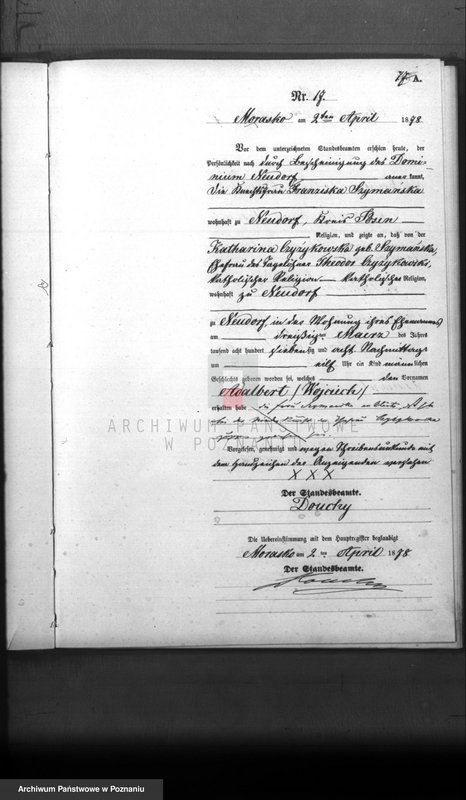 17. A.
Nr. 17.
Morasko am 2ten April 1878
Vor dem unterzeichneten Standesbeamten erschien heute, der
Persönlichkeit nach durch Bescheinigung des Domi-
nium Neudorf anerkannt,
Die Knechtsfrau Franziska Szymańska
wohnhaft zu Neudorf, Kreis Posen
Religion, und zeigte an, daß von der
Katharina Czyżykowska geb. Szymańska,
Ehefrau des Tagelöhner Theodor Czyżykowski,
katholischer Religion katholischer Religion,
wohnhaft zu Neudorf
zu Neudorf in der Wohnung ihres Ehemannes
am dreißigten Maerz des Jahres
tausend acht hundert siebenzig und acht Nachmittags
um eilf Uhr ein Kind männlichen
Geschlechts geboren worden sei, welches den Vornamen
Adalbert (Wojciech)
erhalten habe die Frau Szymańska
Vorgelesen, genehmigt und wegen Schreibensunkunde mit
dem Handzeichen der Anzeigenden versehen
X X X
Der Standesbeamte.
Douchy
Die Uebereinstimmung mit dem Hauptregister beglaubigt
Morasko am 2 ten April 1878
Der Standesbeamte.
Douchy
ARCHIWUM PAŃSTWOWE
W POZNANIU
Archiwum Państwowe w Poznaniu